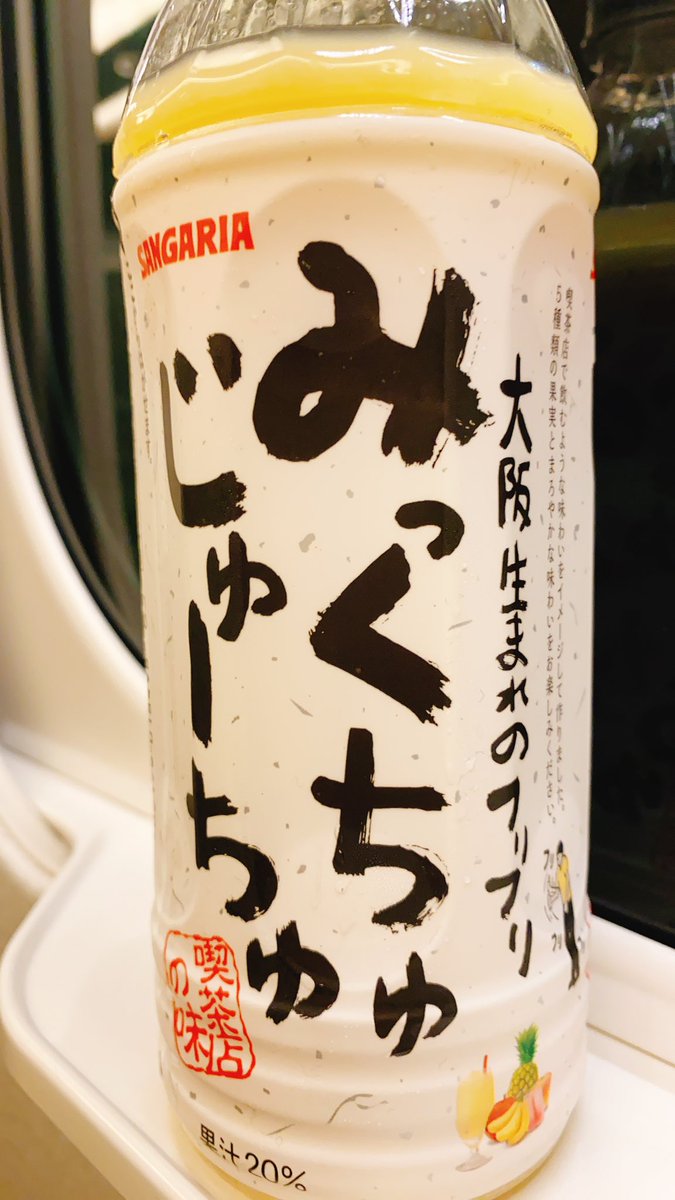 SANGARIA
喫茶店で飲むような味わいをイメージして作りました。
5種類の果実とまろやかな味わいをお楽しみください。
大阪生まれのフリフリ
みっくちゅ
じゅーちゅ
喫茶店
の味
フリ
フリ
果汁20%